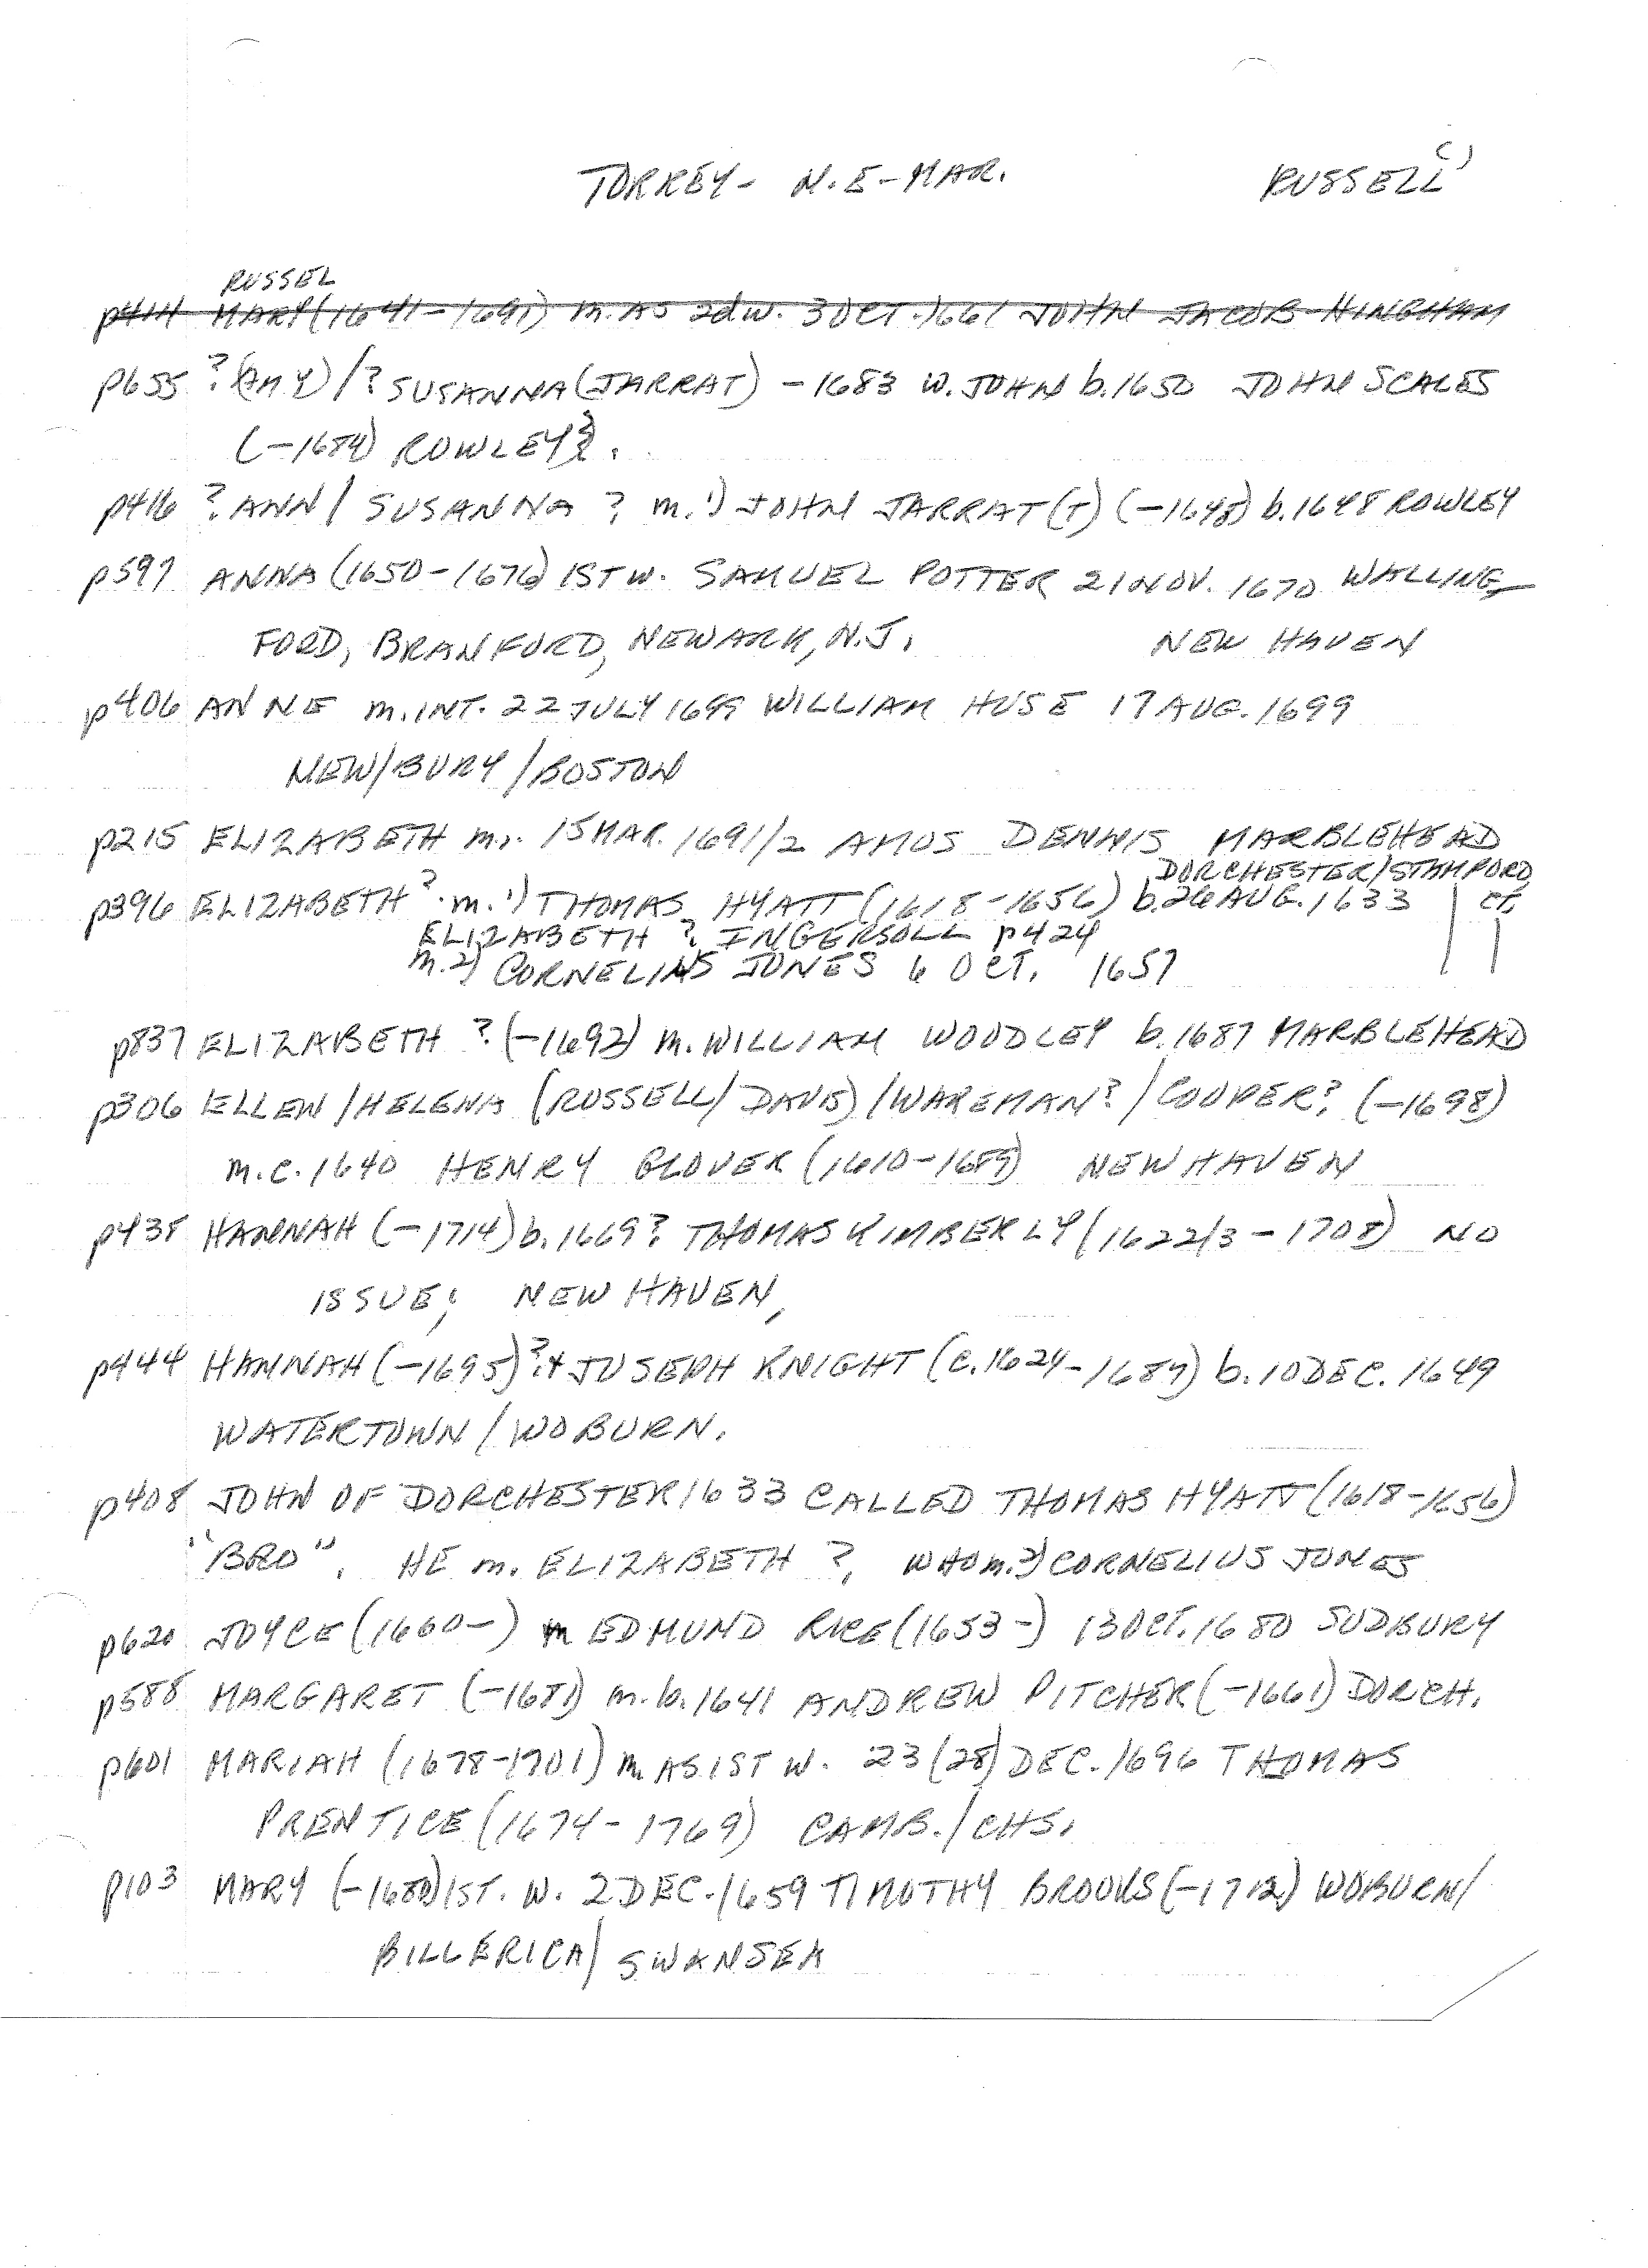 TORREY - N.E-MAR. RUSSELL
RUSSEL
p414 MARY (1641-1691) m. AS 2d w. 3 OCT. 1661 JOHN JACOB HINGHAM
p655 ?(AMY)/? SUSANNA (JARRAT) -1683 W. JOHN b. 1650 JOHN SCALES
(-1684) ROWLEY?.
p416 ? ANN / SUSANNA ? m. 1) JOHN JARRAT(T) (-1648) b. 1648 ROWLEY
p597 ANNA (1650-1676) 1ST W. SAMUEL POTTER 21 NOV. 1670 WALLING-
FORD, BRANFORD, NEWARK, N.J. NEW HAVEN
p406 ANNE m. INT. 22 JULY 1699 WILLIAM HUSE 17 AUG. 1699
NEW/BURY/BOSTON
p215 ELIZABETH m. 15 MAR. 1691/2 AMOS DENNIS MARBLEHEAD
DORCHESTER/STAMFORD,
p396 ELIZABETH ? m. 1) THOMAS HYATT (1618-1656) b. 26 AUG. 1633 CT,
ELIZABETH ? INGERSOLL p424
m. 2) CORNELIUS JONES 6 OCT. 1657
p837 ELIZABETH ? (-1692) m. WILLIAM WOODLEY b. 1687 MARBLEHEAD
p306 ELLEN/HELENA (RUSSELL/DAVIS)/WAKEMAN?/COOPER? (-1698)
m. c. 1640 HENRY GLOVER (1610-1689) NEW HAVEN
p438 HANNAH (-1714) b. 1669? THOMAS KIMBERLY (1622/3-1708) NO
ISSUE; NEW HAVEN,
p444 HANNAH (-1695)? & JOSEPH KNIGHT (c. 1624-1687) b. 10 DEC. 1649
WATERTOWN/WOBURN.
p408 JOHN OF DORCHESTER 1633 CALLED THOMAS HYATT (1618-1656)
"BRO". HE m. ELIZABETH ?, WHO m. 2) CORNELIUS JONES
p620 JOYCE (1660-) m EDMUND RICE (1653-) 13 OCT. 1680 SUDBURY
p588 MARGARET (-1681) m. b. 1641 ANDREW PITCHER (-1661) DORCH.
p601 MARIAH (1678-1701) m AS 1ST W. 23 (28) DEC. 1696 THOMAS
PRENTICE (1674-1769) CAMB./CHS.
p103 MARY (-1680) 1ST. W. 2 DEC. 1659 TIMOTHY BROOKS (-1712) WOBURN/
BILLERICA/ SWANSEA